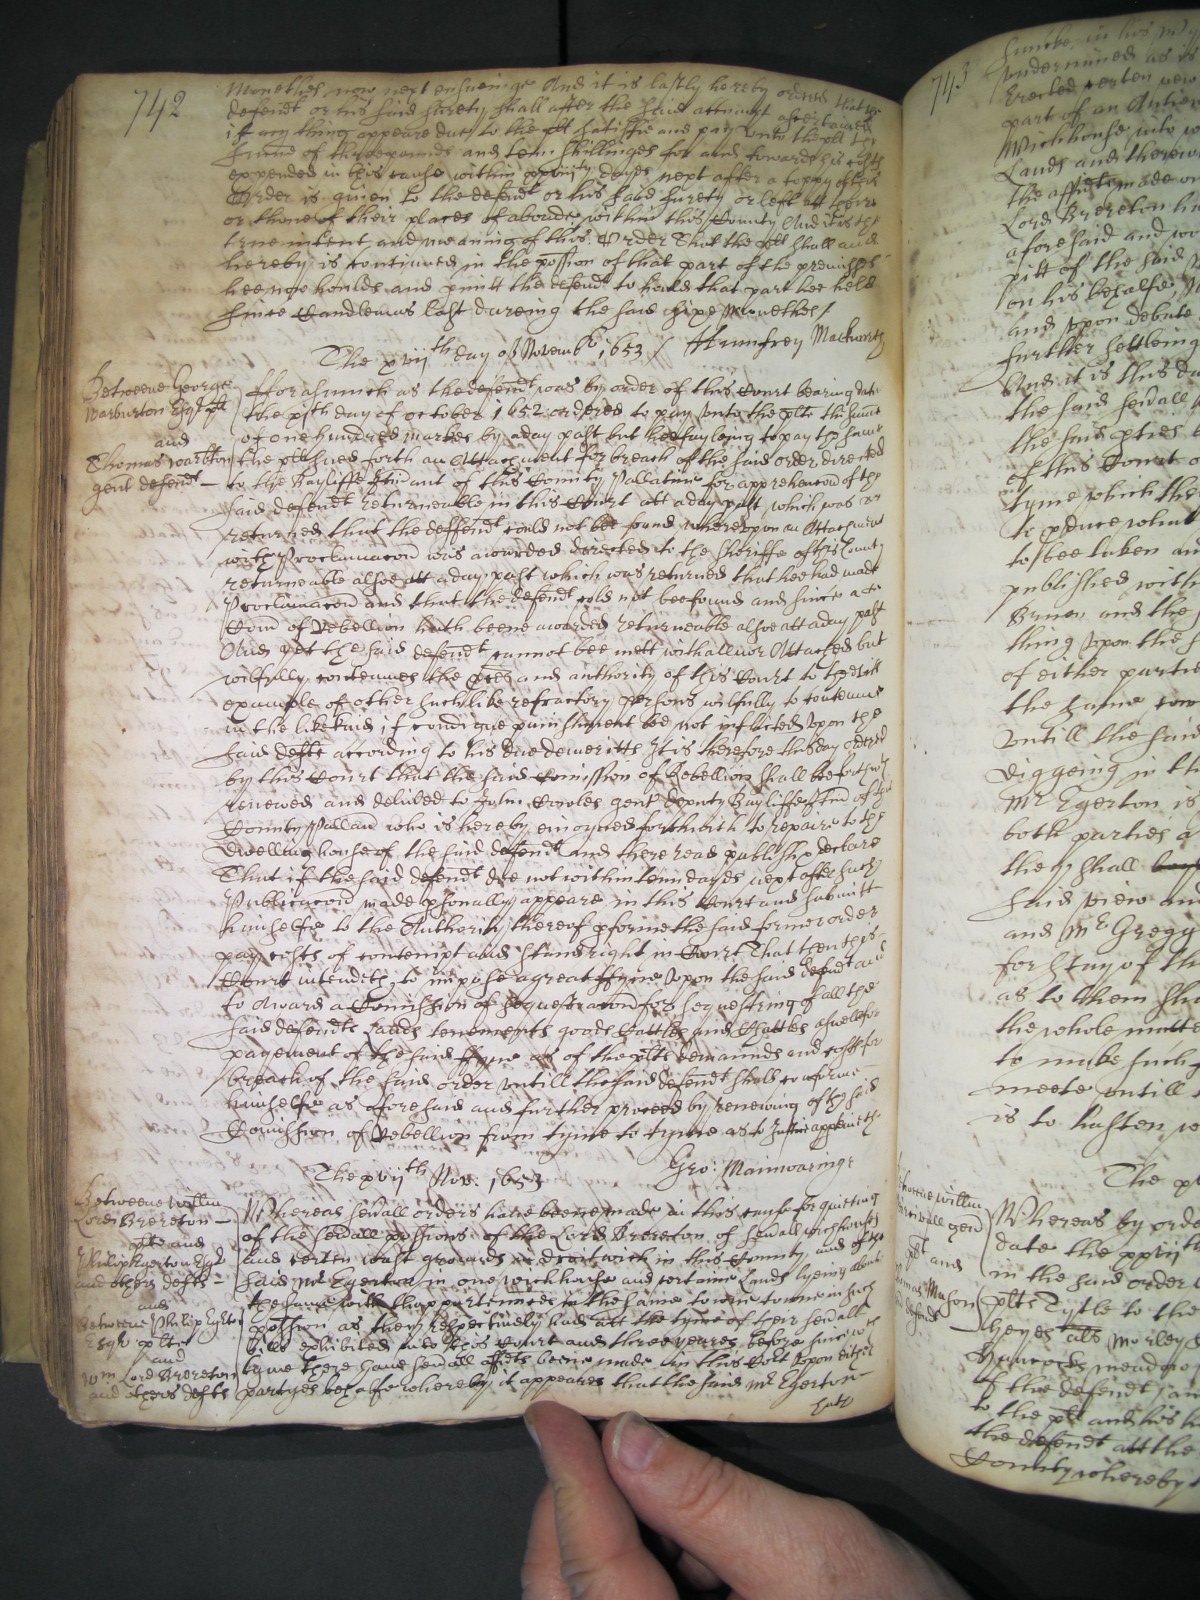 742
Monethes now next ensueinge And it is lastly hereby ordered that the
defendt or his said surety shall after the said attcompt ascertained
if any thing appeare due to the plt satisfie and pay unto the plt the
summe of three pounds and tenn shillinges for and towards his costs
expended in this cause within dayes next after a coppy of this
Order is given to the defendt or his said surety or left att
or thone of their places of aboade within this County And it is the
true intent and meaning of this Order That the plt shall and
hereby is continued in the possion of that part of the premisses
hee now houlds and pmitt the defendt to hould that part hee held
since Candlemas last dureing the said sixe Monethes /
The xvijth day of Novembr 1653 / Humfrey Mackworth
Betweene George
Warburton Esqr plt
and
Thomas Warbton
gent defendt
fforasmuch as the defendt was by order of this Court bearing date
the xjth day of october 1652 ordered to pay unto the plt the summe
of one hundred markes by a day past but hee fayleing to pay the same
the plt sued forth an Attachment for breach of the said order directed
to the Bayliffe Itinant of this County Pallatine for apprehencon of the
said defendt returneable in this Court att a day past which was
returned that the deffendt could not bee found whereupon an Attachment
with Proclamacon was awarded directed to the Sheriffe of this County
returneable alsoe att a day past which was returned that hee had made
Proclamacon and that the defendt cold not bee found and since a
Com of Rebellion hath beene awarded returneable alsoe att a day past
And yet the said defendt cannot bee mett withall nor Attached but
wilfully contemnes the pces and authority of this Court to the evill
example of other such like refractory persons wilfully to contemne
in the like kind if condigne punishment be not inflicted upon the
said defte according to his due demeritts It is therefore this day ordered
by this Court that the said Comission of Rebellion shall bee forthwth
renewed and delived to John Cowles gent deputy Bayliffe Itin of this
County Pallan who is hereby enioyned forthwith to repaire to the
dwelling house of the said defendt and there read publish & declare
That if the said defendt doe not within tenn dayes next after such
Publicacon made psonally appeare in this Court and submitt
himselfe to the Authority thereof pforme the said former order
pay costs of contempt and stand right in Court That then this
Court intendith to impose a great ffyne upon the said defendt and
to Award a Comission of Sequestracon for sequestring of all the
said defendts Lands tenements goods Cattles and Chattles aswell for
payement of the said ffyne as of the plts demaunds and costs for
breach of the said order untill the said defendt shall conforme
himselfe as aforesaid and further proceed by renewing of the said
Comission of Rebellion from tyme to tyme as to Justice apptein the
The xvijth Nov: 1653 Geo: Mainwaringe
Betweene Willm
Lord Brereton
plte and
Philip Egerton Esqr
and others defts
and
Betweene Philip Egerton
Esqr plte
and
Wm Lord Brereton
and others defts
Whereas sevall orders have beene made in this cause for quieting
of the sevall possions of the Lord Brereton of sevall wich houses
and certen wast grounds in droitwich in this County and of the
said Mr Egerton in one wichhouse and certaine Lands lyeing about
the same with thappurtenncs in the same towne to remaine in such
possion as they respectively had att the tyme of their sevall
bills exhibited into this Court and three yeares before since wch
tyme there have sevall affidts beene made in this Cort upon either
partyes behalfe whereby it appeares that the said Mr Egerton
hath
743
undermined as it
Erected certen new
part of an Antien
Wichhouse into
Lands and therew
the affidts made on
Lord Brereton
aforesaid and
pitt of the said
on his behalfe
and upon debate
further setleing
And it is this da
the said sevall
the said pties
of this Court
tyme which the
to pduce what
to bee taken an
published with
and the
thing upon the
of either partie
the same
untill the said
diggeing in th
Mr Egerton is
both parties a
they shall
said view an
and Mr Gregg
for Stay of th
as to them sha
the whole matte
to make such
meete untill
is to hasten
The
Betweene Willm
gen
plt and
Mason
defend
Whereas by orde
date the xxvijth
in the said order
plts Tytle to the
Heyes als Morley
Hancocks meadow
of the defendt
to the plt and his
the defendt att the
County whereby